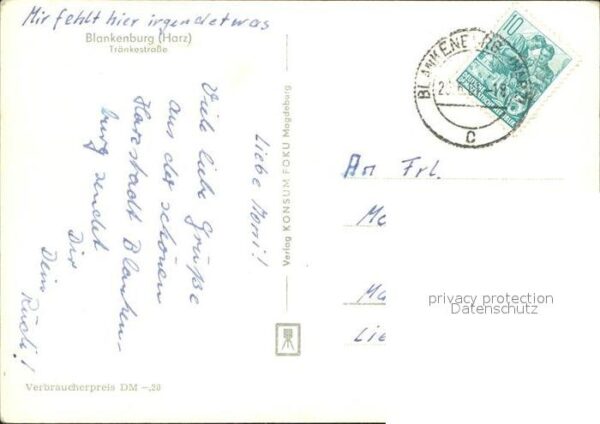 Mir fehlt hier irgendetwas
Blankenburg (Harz)
Tränkestraße
Liebe Moni!
Viele liebe Grüße
aus der schönen
Harzstadt Blanken-
burg sendet
Dir
Dein
Rudi!
Verbraucherpreis DM -,20
Verlag KONSUM FOKU Magdeburg
10
BLANKENBURG (HARZ)
c
An Frl.
Ma
Lie
privacy protection
Datenschutz